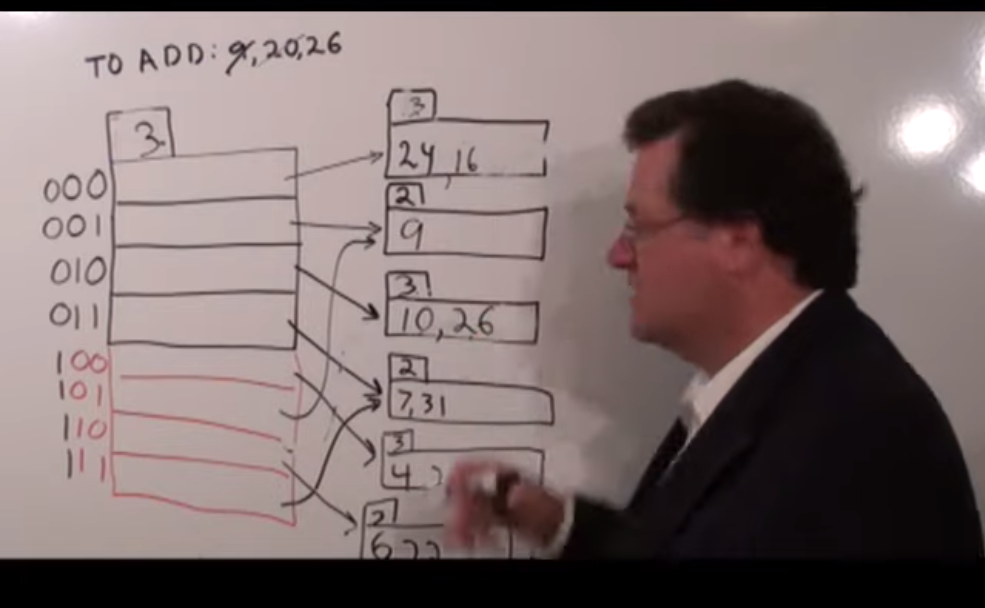 TO ADD: 9,20,26
3
000
001
010
011
100
101
110
111
3
24,16
2
9
3
10,26
2
7,31
3
4,
2
6